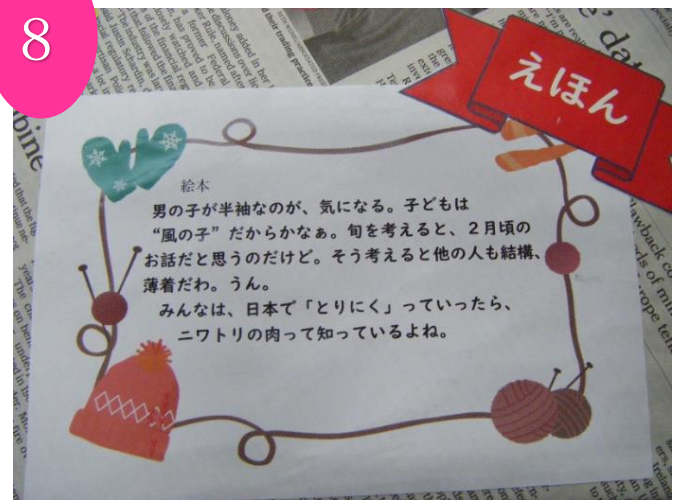 8
えほん
絵本
男の子が半袖なのが、気になる。子どもは
“風の子”だからかなぁ。旬を考えると、２月頃の
お話だと思うのだけど。そう考えると他の人も結構、
薄着だわ。うん。
みんなは、日本で「とりにく」っていったら、
ニワトリの肉って知っているよね。